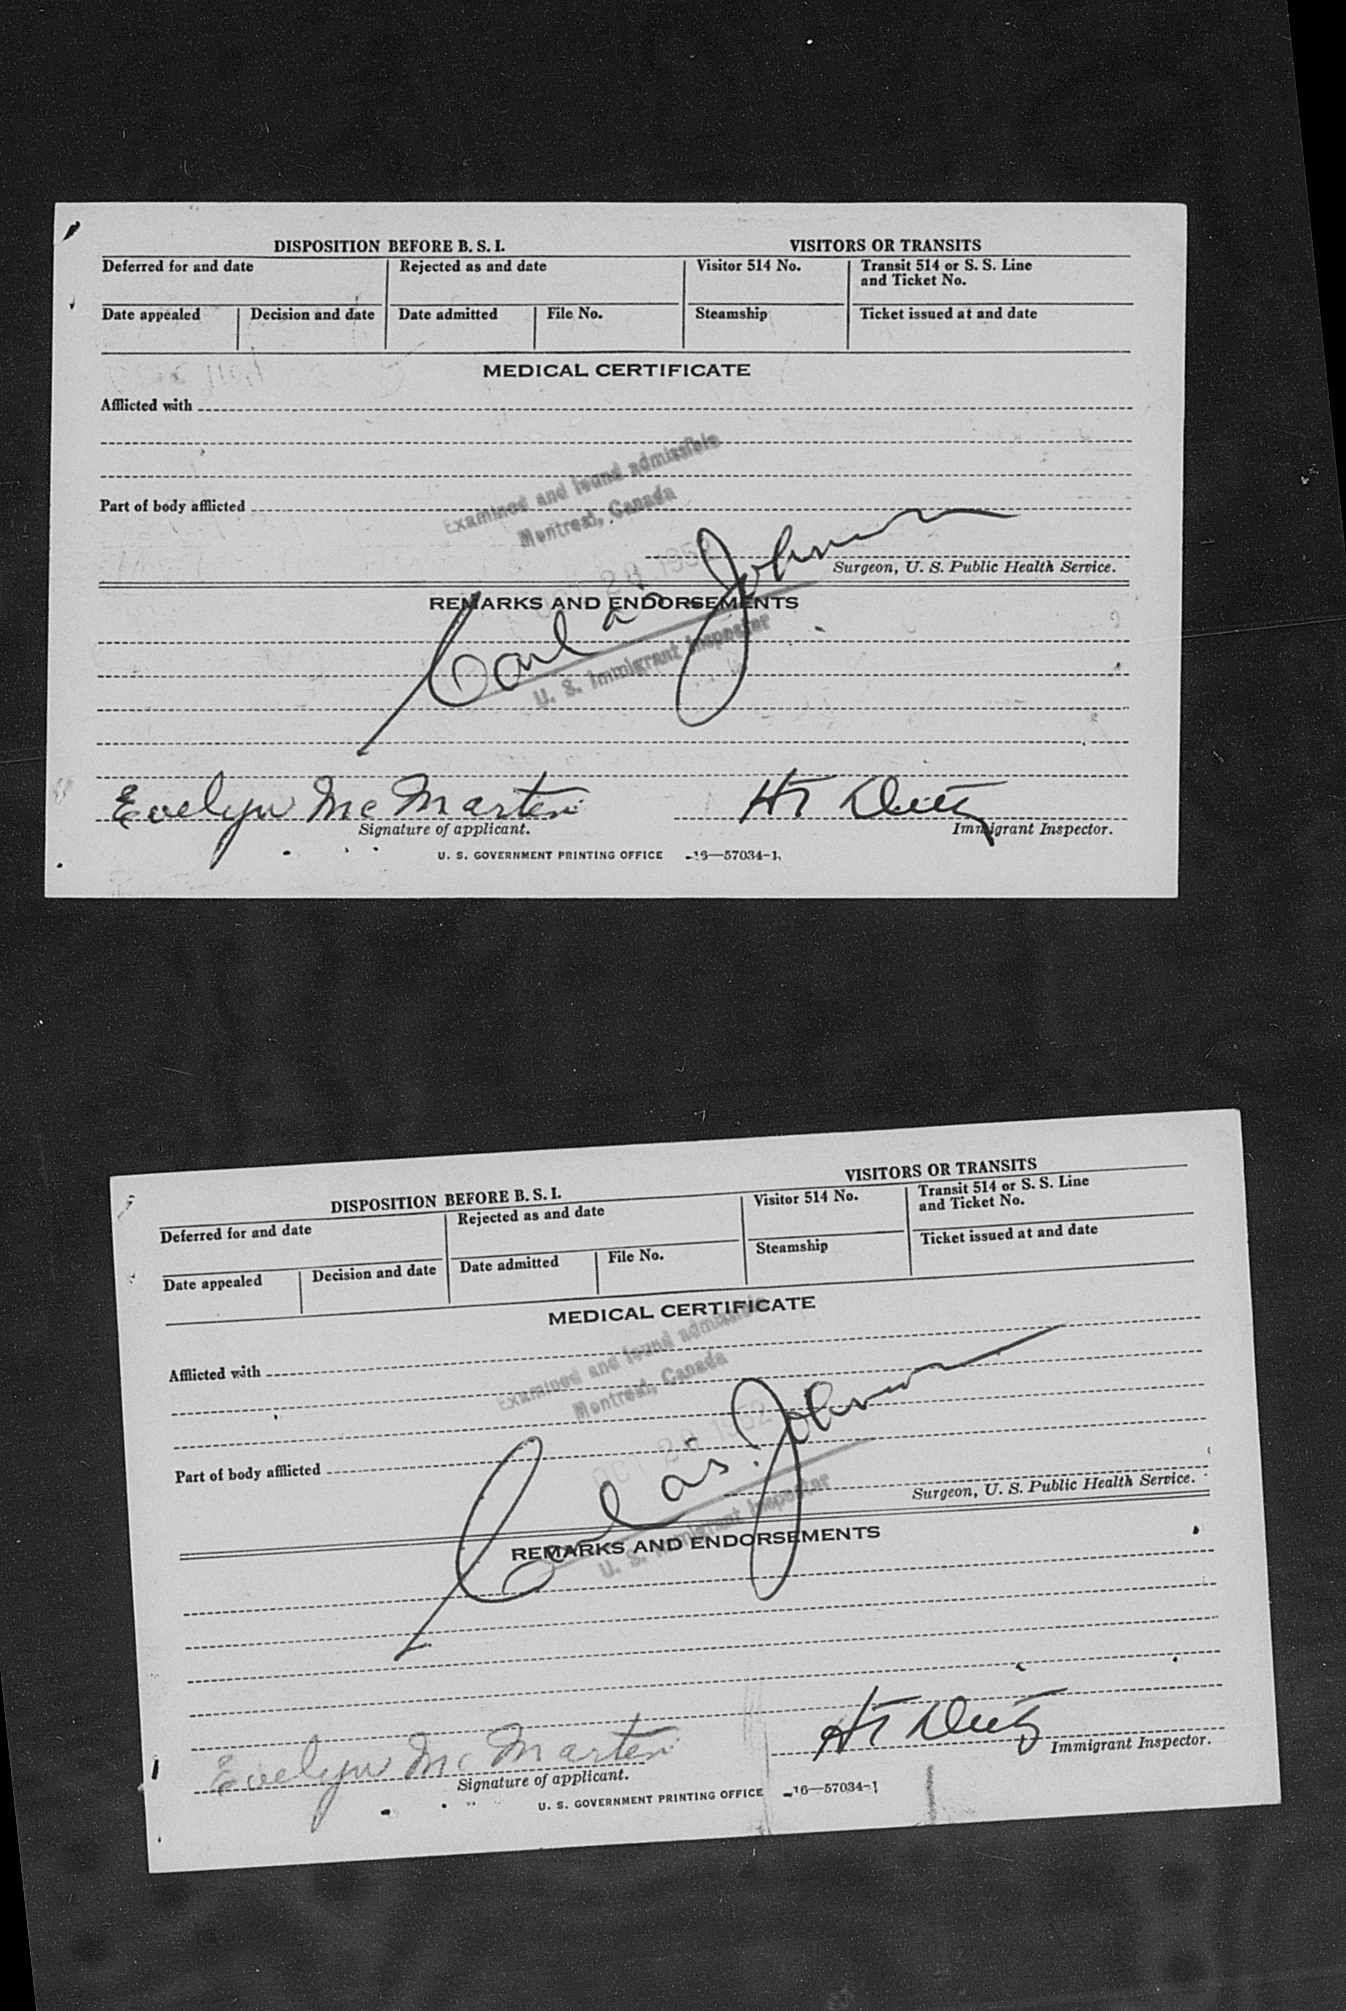 DISPOSITION BEFORE B. S. I. VISITORS OR TRANSITS
Deferred for and date Rejected as and date Visitor 514 No. Transit 514 or S. S. Line
and Ticket No.
Date appealed Decision and date Date admitted File No. Steamship Ticket issued at and date
MEDICAL CERTIFICATE
Afflicted with
Examined and found admissible
Part of body afflicted
Montreal, Canada
28 1952
Surgeon, U. S. Public Health Service.
REMARKS AND ENDORSEMENTS
Carl Johnson
U. S. Immigrant Inspector
Evelyn McMartin
Signature of applicant. Immigrant Inspector.
U. S. GOVERNMENT PRINTING OFFICE 16—57034-1
DISPOSITION BEFORE B. S. I. VISITORS OR TRANSITS
Deferred for and date Rejected as and date Visitor 514 No. Transit 514 or S. S. Line
and Ticket No.
Date appealed Decision and date Date admitted File No. Steamship Ticket issued at and date
MEDICAL CERTIFICATE
Examined and found admissible
Afflicted with
Montreal, Canada
OCT 28 1952
Part of body afflicted
Carl Johnson
Surgeon, U. S. Public Health Service.
U. S. Immigrant Inspector
REMARKS AND ENDORSEMENTS
Evelyn McMartin
Signature of applicant. Immigrant Inspector.
U. S. GOVERNMENT PRINTING OFFICE 16—57034-1